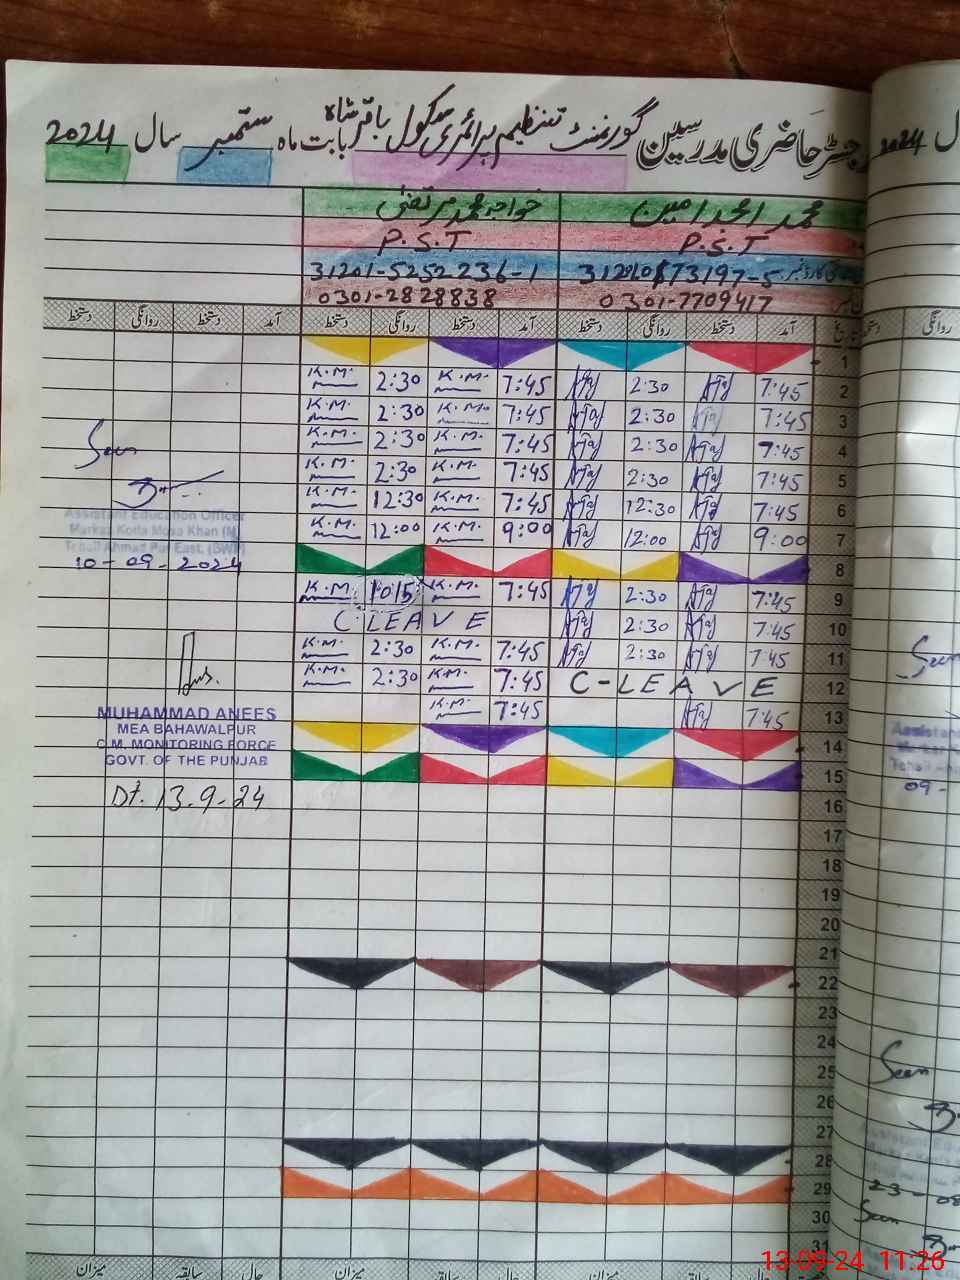 رجسٹر حاضری مدرسین گورنمنٹ تنظیم پرائمری سکول باقر شاہ بابت ماہ ستمبر سال 2024
محمد امجد امین خواجہ محمد مرتضیٰ
P.S.T P.S.T
31201-5252236-1
0301-7709417 0301-2828838
آمد دستخط روانگی دستخط آمد دستخط روانگی دستخط آمد دستخط روانگی دستخط
1
K.M. 2:30 K.M. 7:45 2:30 7:45 2
K.M. 2:30 K.M. 7:45 2:30 7:45 3
K.M. 2:30 K.M. 7:45 2:30 7:45 4
K.M. 2:30 K.M. 7:45 2:30 7:45 5
K.M. 12:30 K.M. 7:45 12:30 7:45 6
K.M. 12:00 K.M. 9:00 12:00 9:00 7
8
K.M. 1015 K.M. 7:45 2:30 7:45 9
C.LEAVE 2:30 7:45 10
K.M. 2:30 K.M. 7:45 2:30 7:45 11
K.M. 2:30 K.M. 7:45 C-LEAVE 12
K.M. 7:45 7:45 13
14
15
16
17
18
19
20
21
22
23
24
25
26
27
28
29
30
31
میزان سابقہ حال میزان
Seen
Assistant Education Officer
Markaz Kotla Mosa Khan (M)
Tehsil Ahmad Pur East, (BWP)
10-09-2024
MUHAMMAD ANEES
MEA BAHAWALPUR
C.M. MONITORING FORCE
GOVT. OF THE PUNJAB
Dt. 13.9-24
2024
روانگی
Seen
Assistant
09-
Seen
23-08
Seen
13-09-24 11:26